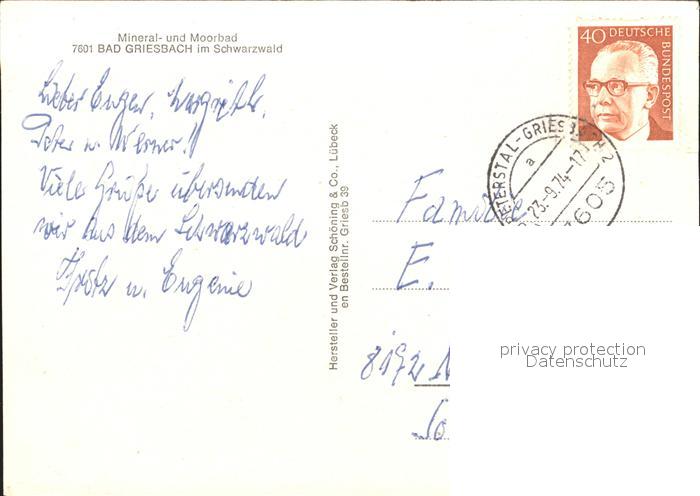 Mineral- und Moorbad
7601 BAD GRIESBACH im Schwarzwald
Lieber Eugen,
Peter u. Werner!
Viele Grüße übersenden
wir aus dem Schwarzwald
u. Eugenie
Hersteller und Verlag Schöning & Co., Lübeck
en Bestellnr. Griesb 39
40 DEUTSCHE
BUNDESPOST
PETERSTAL-GRIESBACH 2
a
23.-9.74-17
7605
Familie
E.
privacy protection
Datenschutz